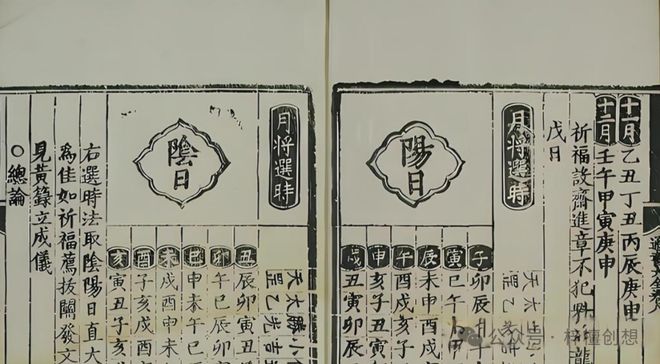 十一月 乙丑丁丑丙辰庚申
十二月 壬午甲寅庚申
祈福設齋進章不犯
戊日
月将選時
陽日
子 卯辰
寅 巳午
辰 未申酉戌
午 酉戌亥子
申 亥子丑寅
戌 丑寅卯辰
月将選時
陰日
丑 辰卯寅丑
卯 午巳辰卯
巳 申未午巳
未 戌酉申未
酉 子亥戌酉
亥 寅丑子亥
右選時法取陰陽日直大
為佳如祈福薦拔關發文
見黃籙立成儀
○總論
公众号
创想